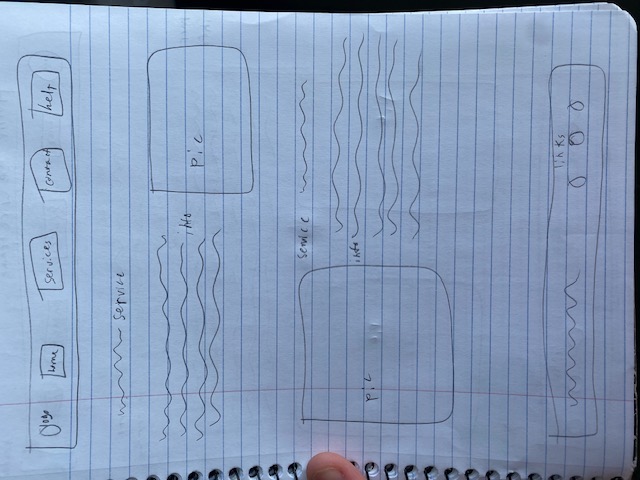 logo home services contact help
service
info
pic
service
info
pic
links